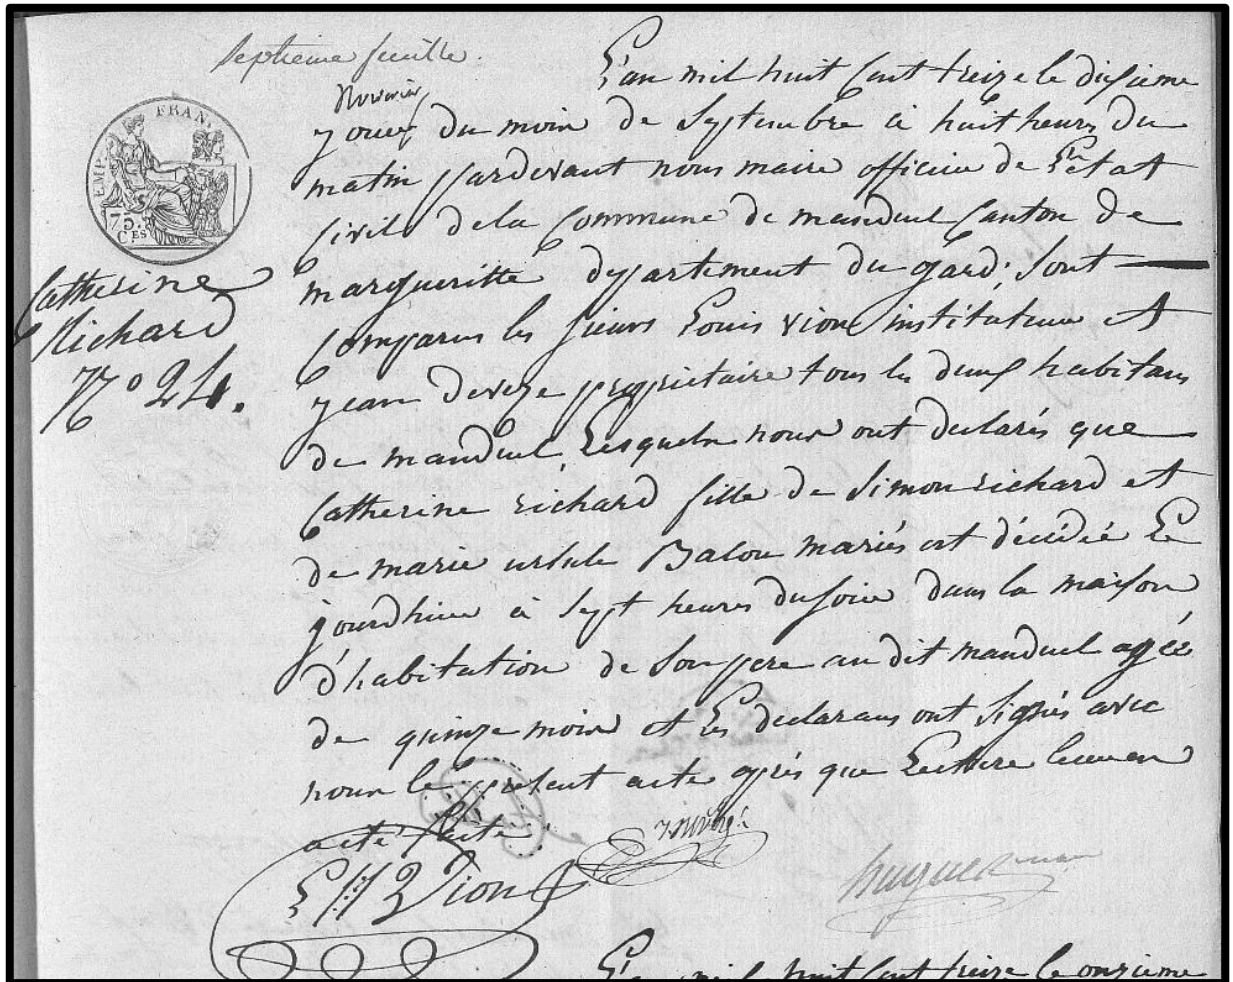 septieme feuille.
L'an mil huit cent treize le dixieme
jour du moin de Septembre à huit heures du
matin pardevant nous maire officier de L'Etat
civil de la commune de manduel canton de
margueritte departement du gard; sont
comparus les sieurs Louis vion instituteur et
jean deveze proprietaire tous les deux habitans
de manduel, Lesquels nous ont declarés que
Catherine richard fille de Simon richard et
de marie ursule Balon mariés est décédée Le
jourdhuir à sept heures du soir dans la maison
d'habitation de Son pere au dit manduel agée
de quinze mois et Les declarans ont signés avec
nous le présent acte après que Lecture leur en
a été faite
Vion
hugues maire
FRAN.
EMP.
75.
C.ES
Catherine
Richard
N° 24.
L'an mil huit cent treize le onzieme